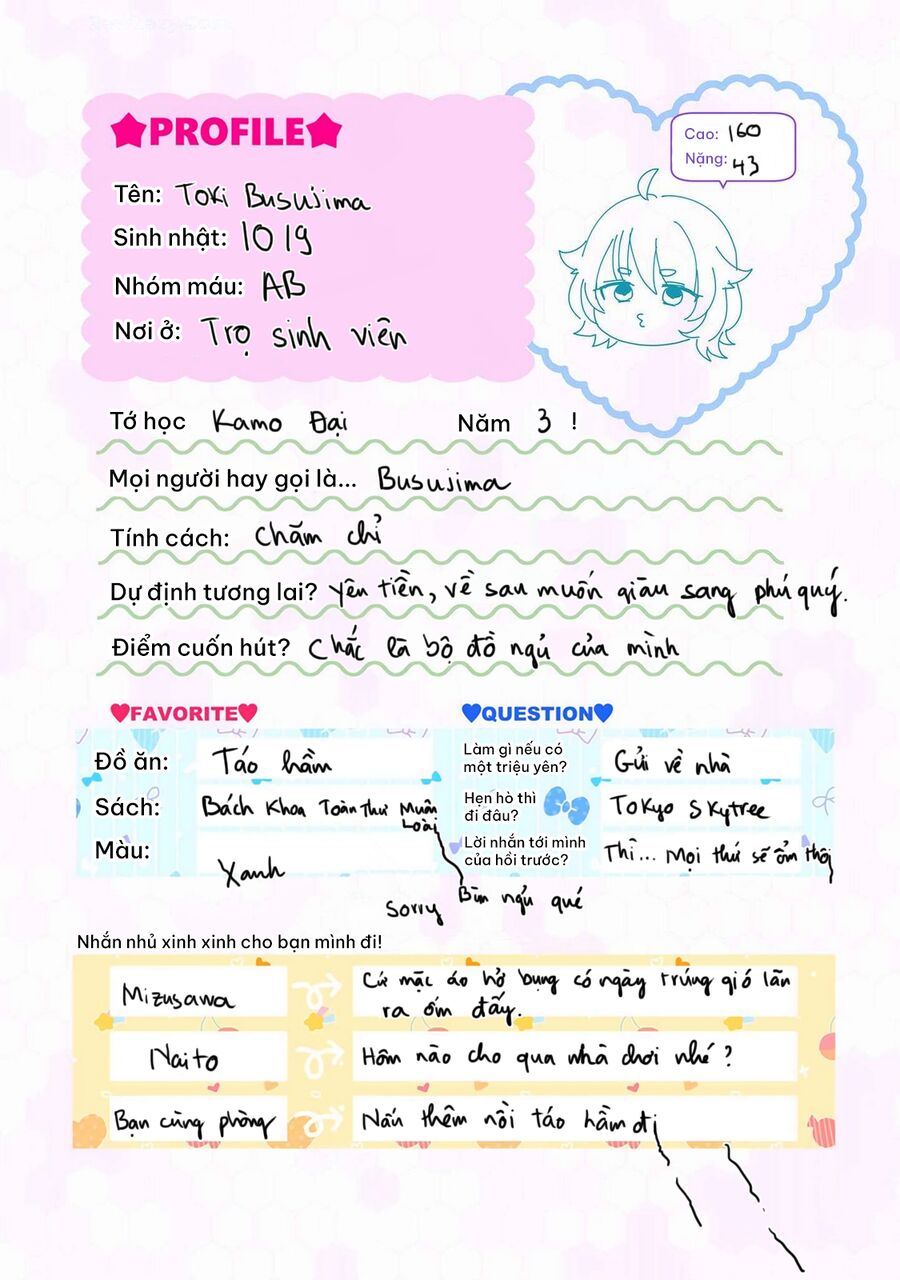 ★PROFILE★
Cao: 160
Nặng: 43
Tên: Toki Busujima
Sinh nhật: 10 19
Nhóm máu: AB
Nơi ở: Trọ sinh viên
Tớ học Kamo Đại Năm 3 !
Mọi người hay gọi là... Busujima
Tính cách: Chăm chỉ
Dự định tương lai? Yên tiền, về sau muốn giàu sang phú quý.
Điểm cuốn hút? Chắc là bộ đồ ngủ của mình
♥FAVORITE♥
Đồ ăn: Táo hầm
Sách: Bách Khoa Toàn Thư Muôn Loài
Màu: Xanh
♥QUESTION♥
Làm gì nếu có
một triệu yên? Gửi về nhà
Hẹn hò thì
đi đâu? Tokyo Skytree
Lời nhắn tới mình
của hồi trước? Thì... Mọi thứ sẽ ổn thôi
Sorry
Buồn ngủ qué
Nhắn nhủ xinh xinh cho bạn mình đi!
Mizusawa
Cứ mặc áo hở bụng có ngày trúng gió lăn
ra ốm đấy.
Naito
Hôm nào cho qua nhà chơi nhé?
Bạn cùng phòng
Nấu thêm nồi táo hầm đi